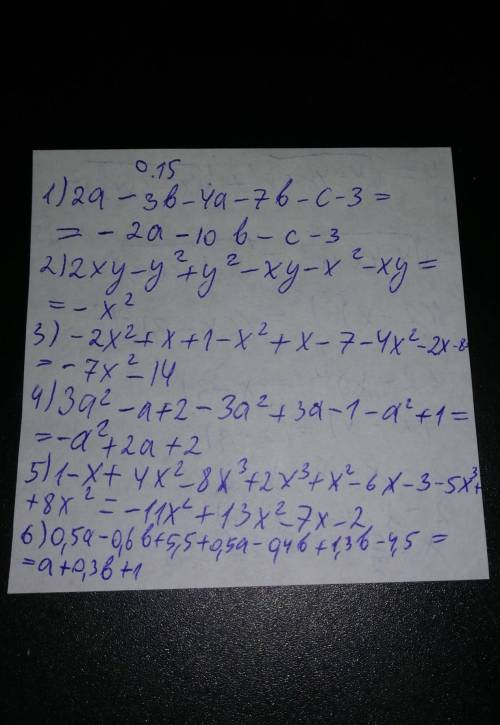 0.15
1) 2a - 3b - 4a - 7b - c - 3 =
= - 2a - 10 b - c - 3
2) 2xy - y² + y² - xy - x² - xy =
= - x²
3) - 2x² + x + 1 - x² + x - 7 - 4x² - 2x - 8
= - 7x² - 14
4) 3a² - a + 2 - 3a² + 3a - 1 - a² + 1 =
= -a² + 2a + 2
5) 1 - x + 4x² - 8x³ + 2x³ + x² - 6x - 3 - 5x³ +
+ 8x² = - 11x² + 13x² - 7x - 2
6) 0,5a - 0,6b + 5,5 + 0,5a - 0,4b + 1,3b - 4,5 =
= a + 0,3b + 1